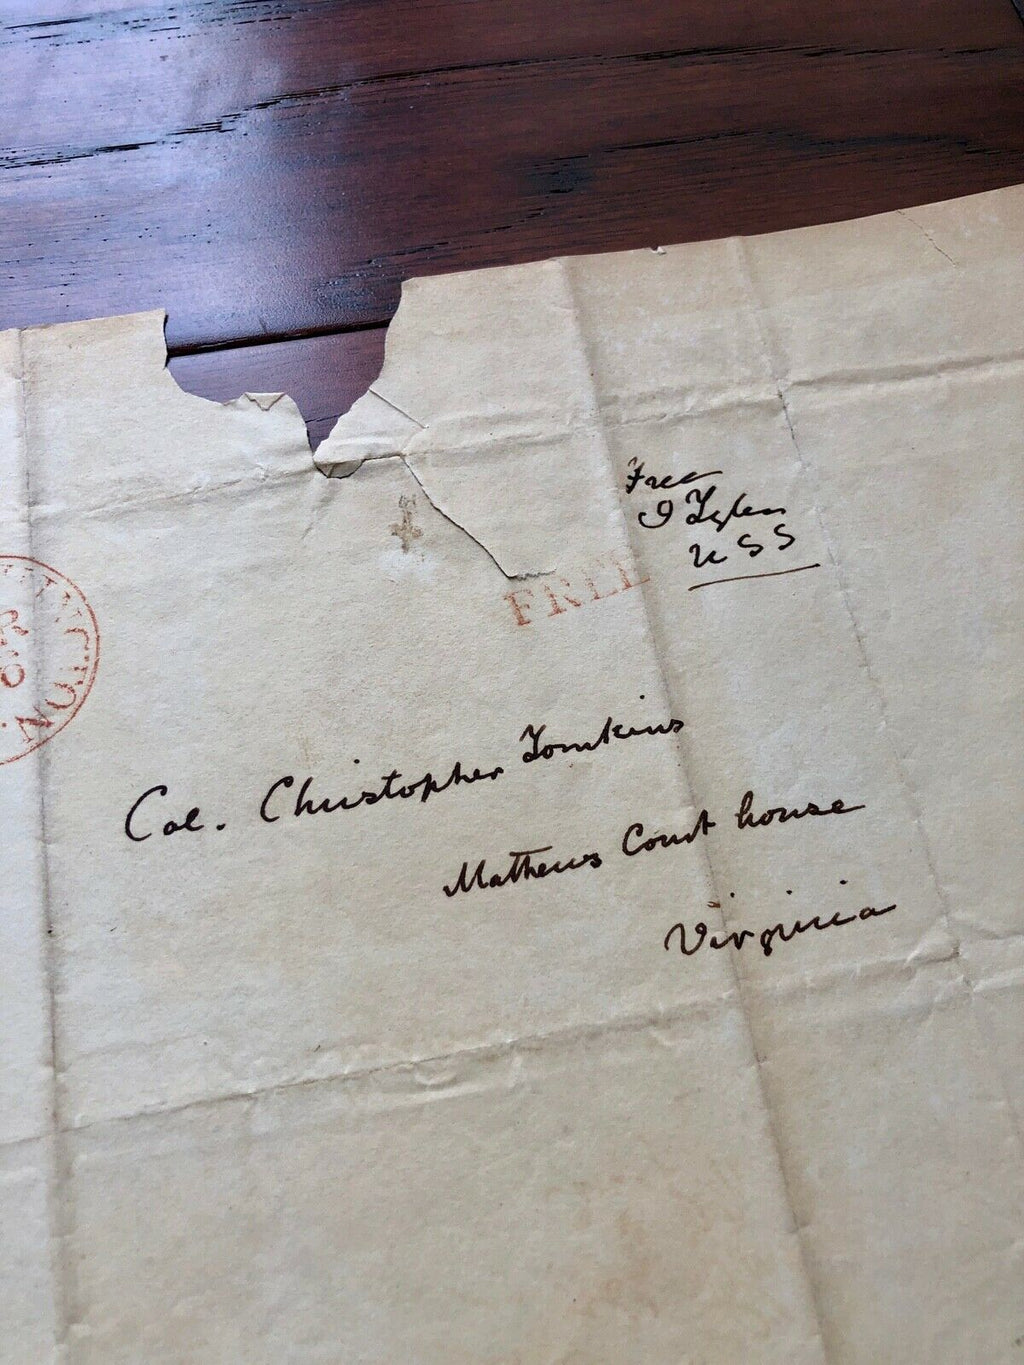 Free
J Tyler
U S S
FREE
R
NGTON
Col. Christopher Tomkins
Mathews Court house
Virginia